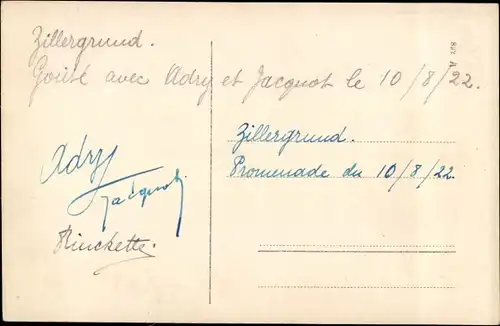 Zillergrund.
Goûté avec Adry et Jacquot le 10/8/22.
Zillergrund.
Promenade du 10/8/22.
Adry
Jacquot
Rinckette.